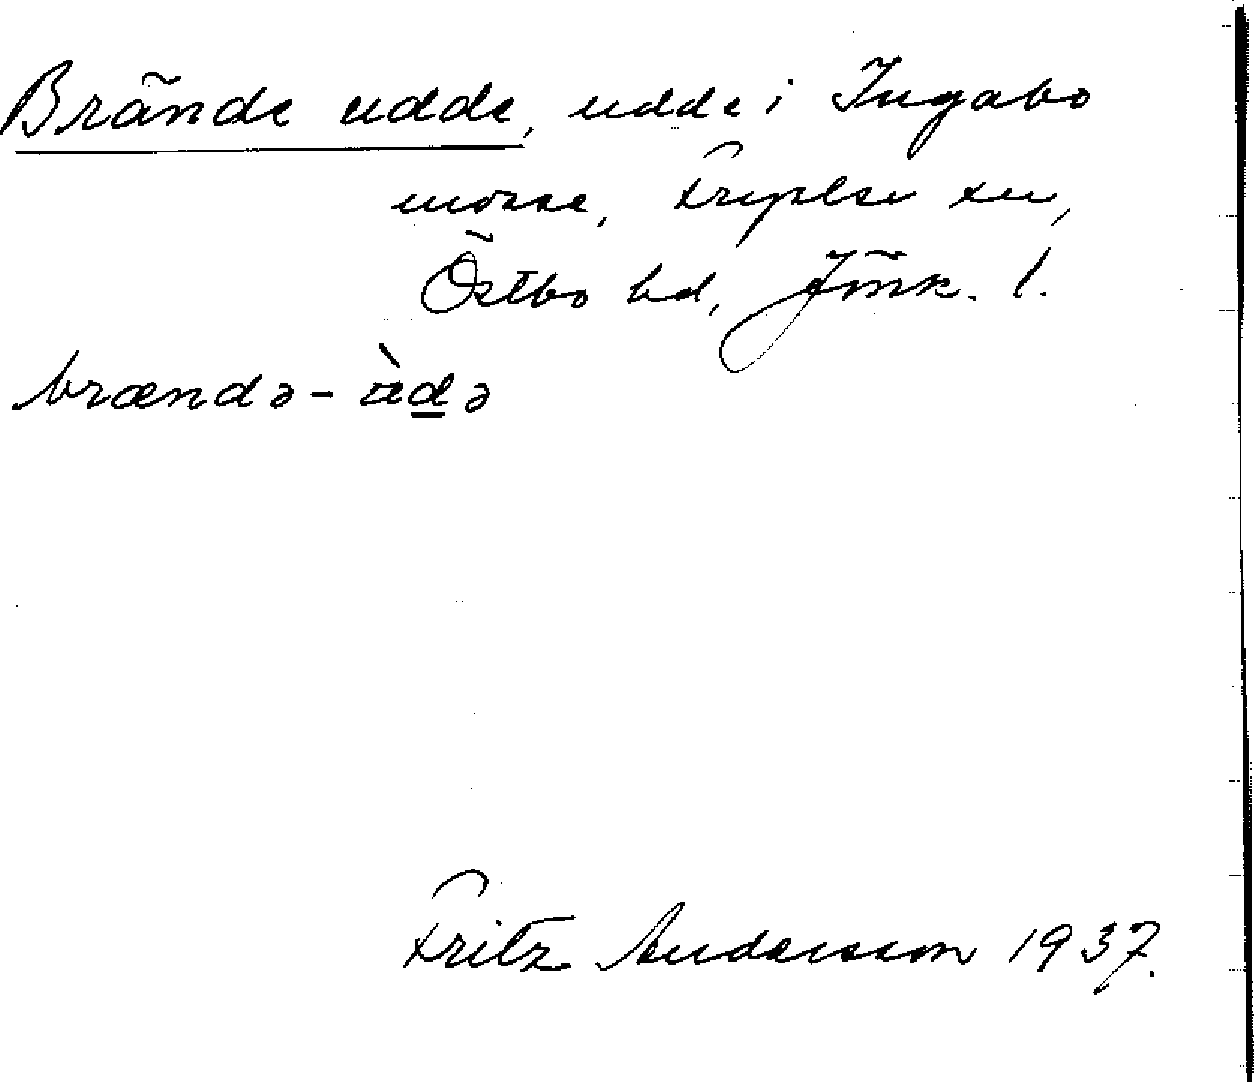 Brände udde, udde i Ingabo
mosse, Fryele sn,
Östbo hd, Jönk. l.
brændə-àdə
Fritz Andersson 1937.